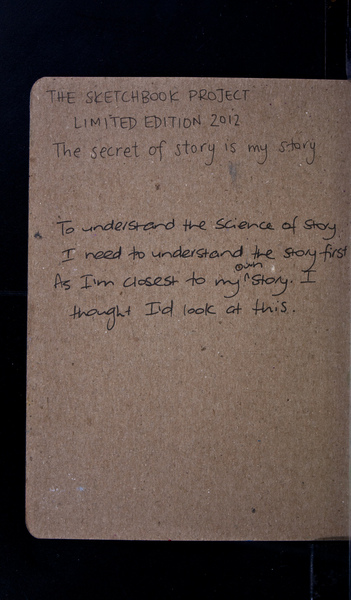 THE SKETCHBOOK PROJECT
LIMITED EDITION 2012
The secret of story is my story
To understand the science of story
I need to understand the story first
As I'm closest to my own story. I
thought I'd look at this.